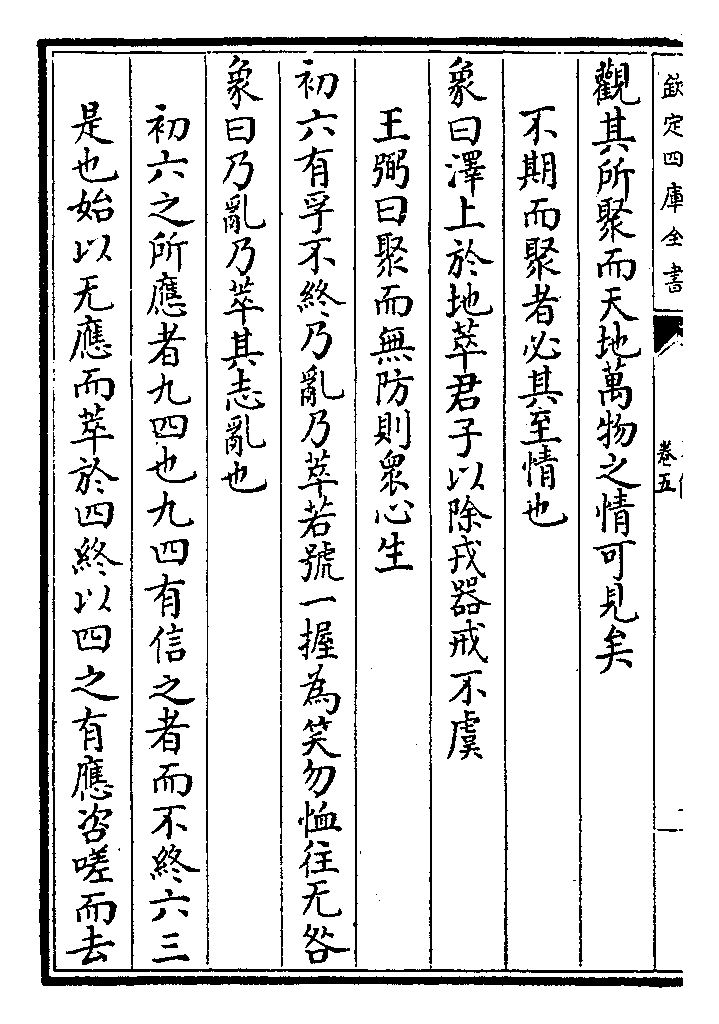 欽定四庫全書
卷五
觀其所聚而天地萬物之情可見矣
不期而聚者必其至情也
象曰澤上於地萃君子以除戎器戒不虞
王弼曰聚而無防則衆心生
初六有孚不終乃亂乃萃若號一握為笑勿恤往无咎
象曰乃亂乃萃其志亂也
初六之所應者九四也九四有信之者而不終六三
是也始以无應而萃於四終以四之有應咨嗟而去